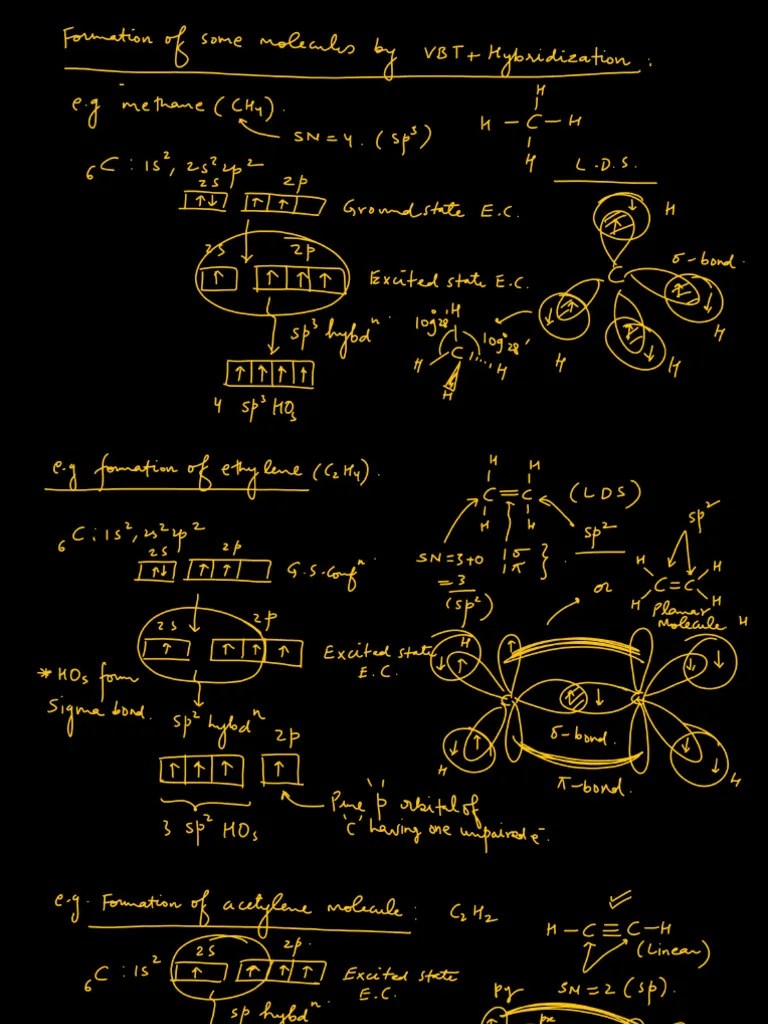 Formation of some molecules by VBT + Hybridization :
e.g methane (CH₄).
SN = 4. (sp³)
H
H – C – H
H
L.D.S.
₆C : 1s², 2s² 2p²
2s 2p
↑↓ ↑ ↑
Ground state E.C.
H
σ-bond.
2s 2p
↑ ↑ ↑ ↑
Excited state E.C.
C
sp³ hybdⁿ
H
109°28'
109°28'
H C H
H
H
H
H
↑ ↑ ↑ ↑
4 sp³ HOs
e.g formation of ethylene (C₂H₄).
H H
C = C
H H
(LDS)
sp²
sp²
₆C : 1s², 2s² 2p²
2s 2p
↑↓ ↑ ↑
G.S. Confⁿ
SN = 3+0
= 3
(sp²)
1σ
1π } .
or
H H
C = C
H H
Planar
molecule
2s 2p
↑ ↑ ↑ ↑
Excited state
E.C.
H
H
* HOs form
Sigma bond.
C
C
sp² hybdⁿ
2p
↑ ↑ ↑ ↑
σ-bond.
H
H
π-bond.
3 sp² HOs
Pure 'p' orbital of
'C' having one unpaired e⁻.
e.g. Formation of acetylene molecule : C₂H₂
H – C ≡ C – H
(Linear)
SN = 2 (sp).
₆C : 1s²
2s 2p.
↑ ↑ ↑ ↑
Excited state
E.C.
sp hybdⁿ
py
px